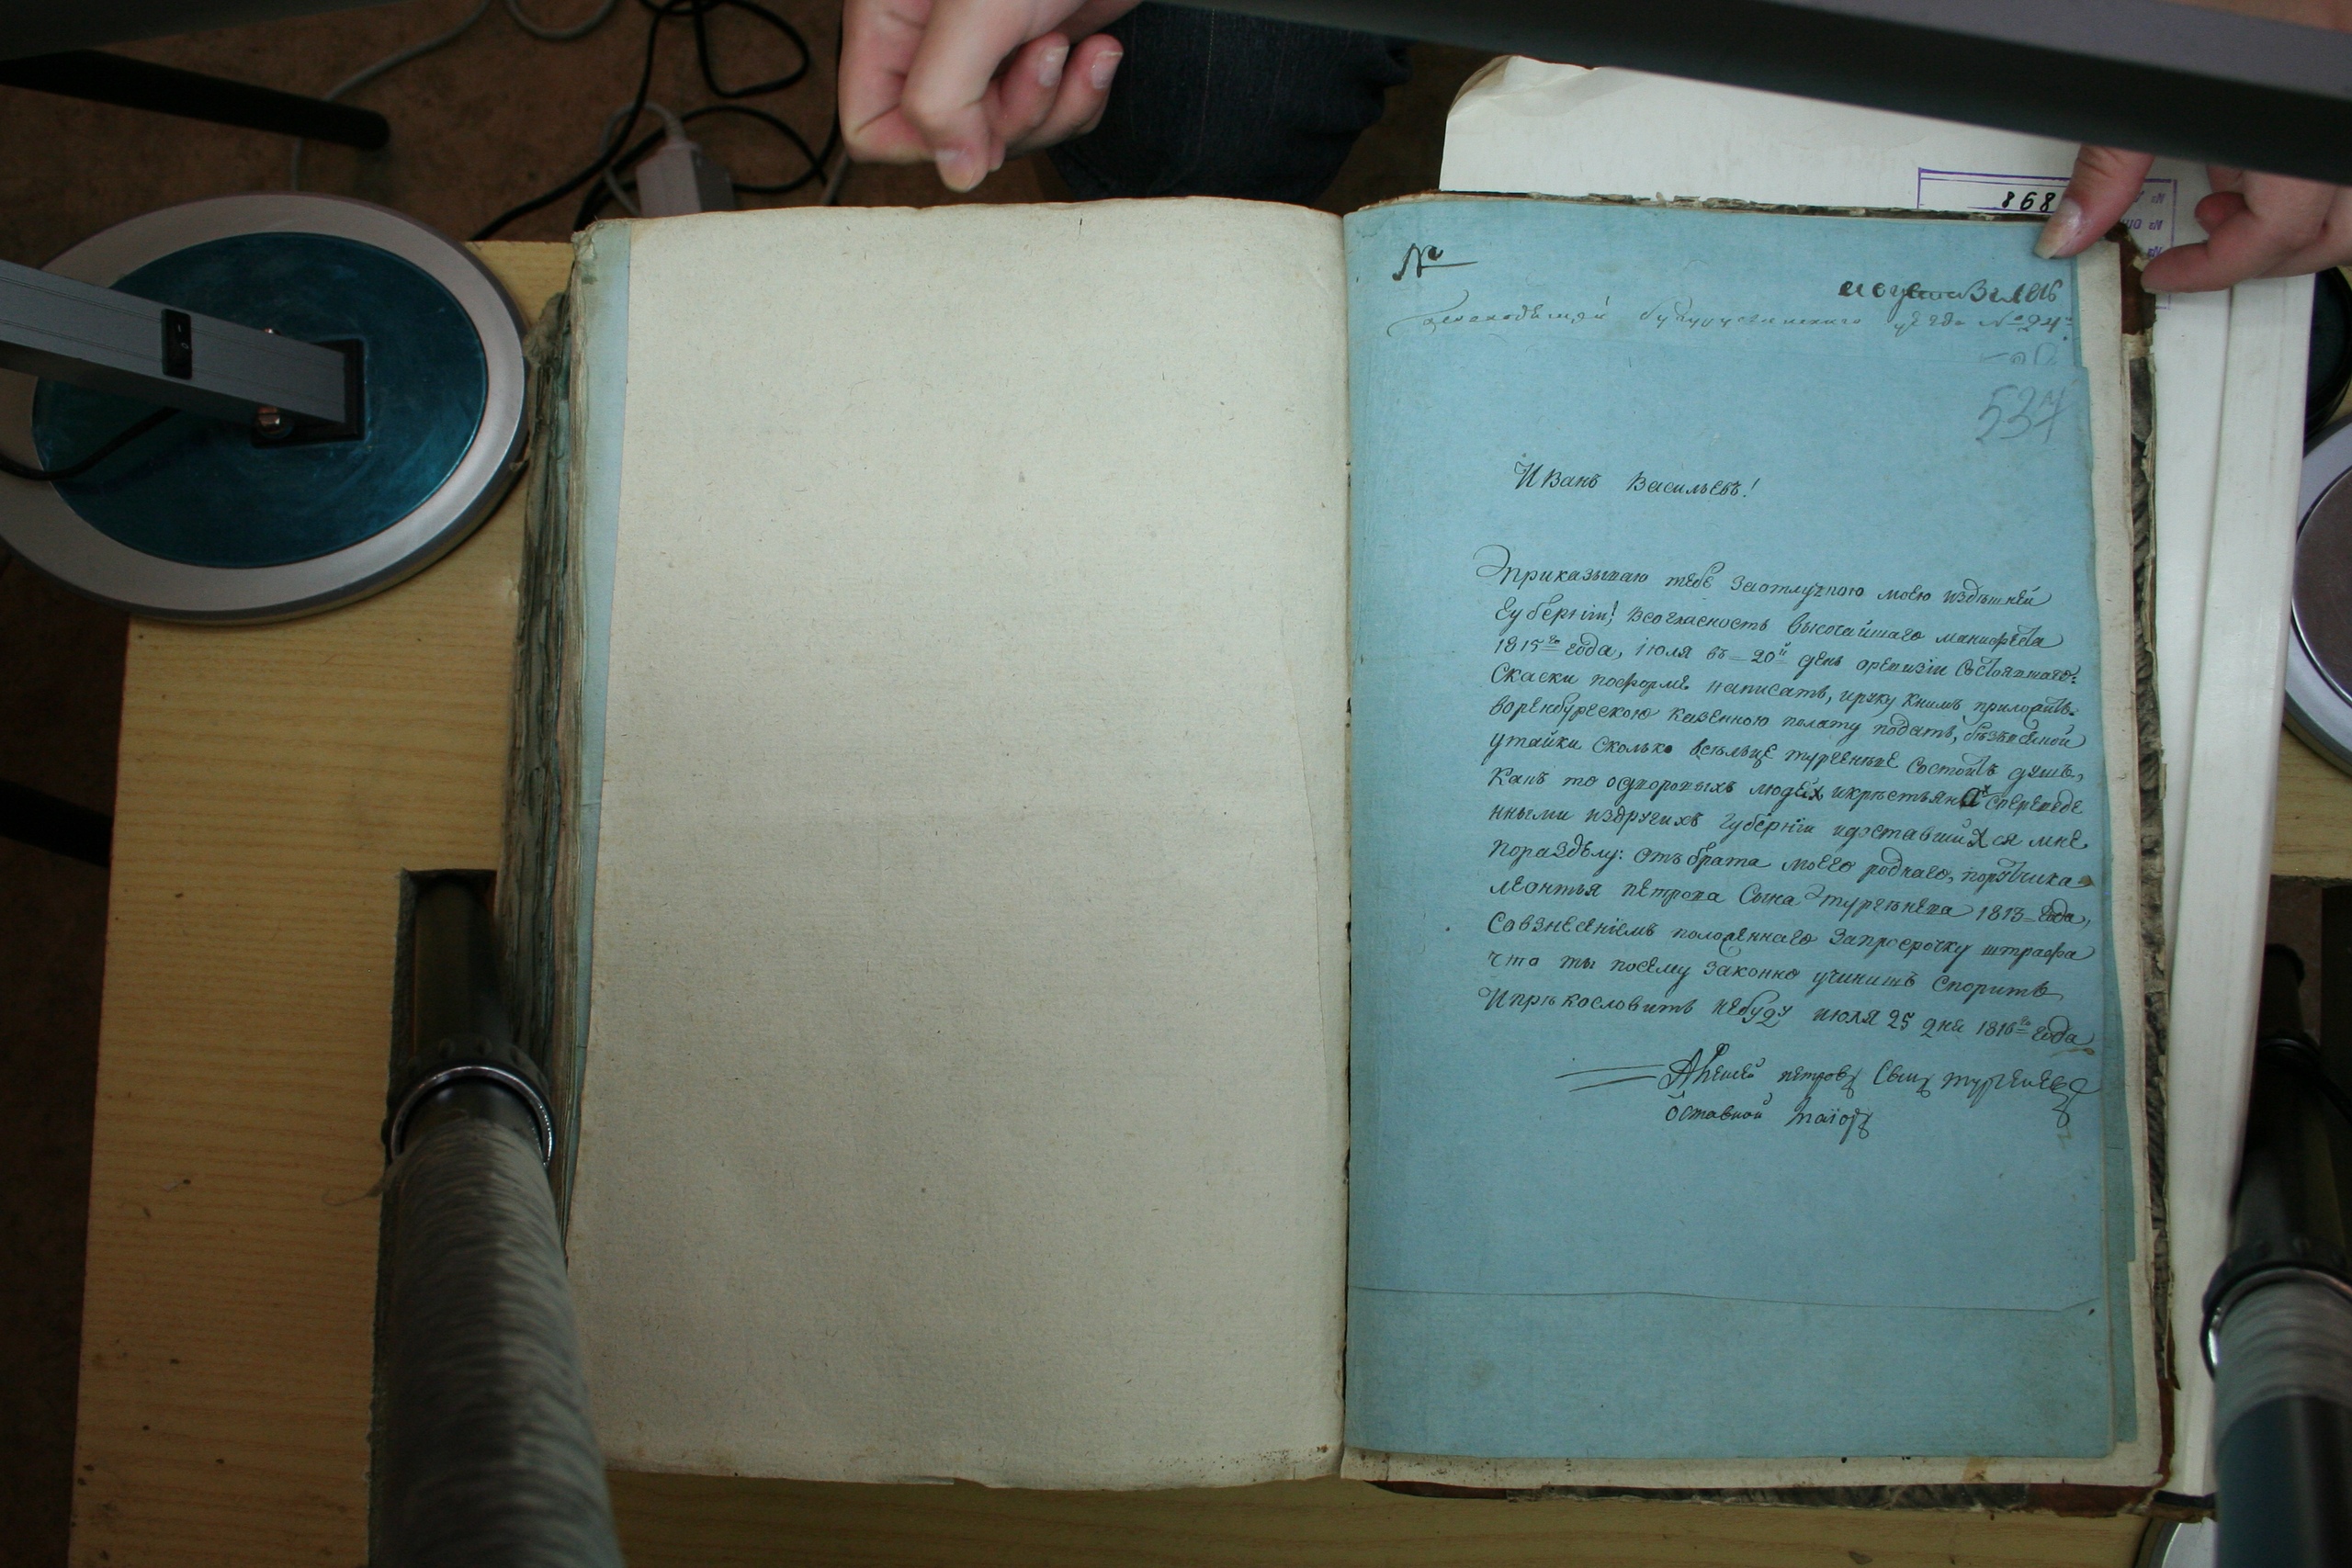 868
№
августа 3 1816
бузулуцкаго уезда № 94
537
Иванъ Васильевъ!
Я приказываю тебе заотлучкою моею издешней
Губернiи! Всогласность Высочайшаго манифеста
1815го года, iюля въ 20й день оревизiи Состоявшаго:
Скаски поформе написать, ируку книмъ приложить
воренбурскою казенною полату подать, безвсякой
утайки Сколько всельце тургеневе Состоитъ душъ,
какъ то одворовыхъ людех икрестьянах спереведе
нными издругихъ Губернiи идоставшихся мне
поразделу: Отъ брата моего роднаго, порутчика
леонтья петрова Сына тургенева 1813 года,
Совзнесенiемъ положеннаго запросрочку штрафа
что ты посему законно учинишъ Спорить
И прекословить небуду июля 25 дня 1816го года
Алексей петровъ Сынъ тургеневъ
оставной маiоръ